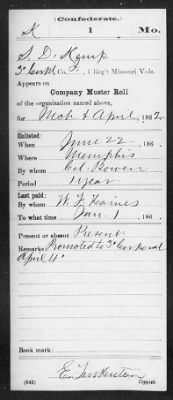 (Confederate.)
K 1 Mo.
S. D. Kemp
3" Corpl Co., 1 Reg't Missouri Vols.
Appears on
Company Muster Roll
of the organization named above,
for Mch & April, 1862.
Enlisted:
When June 22, 186 .
Where Memphis
By whom Col. Bowen
Period 1 year
Last paid:
By whom W. F. Haines
To what time Jan. 1, 186 .
Present or absent Present
Remarks: Promoted to 3" Corporal
April 1"
Book mark:
(642) Copyist.